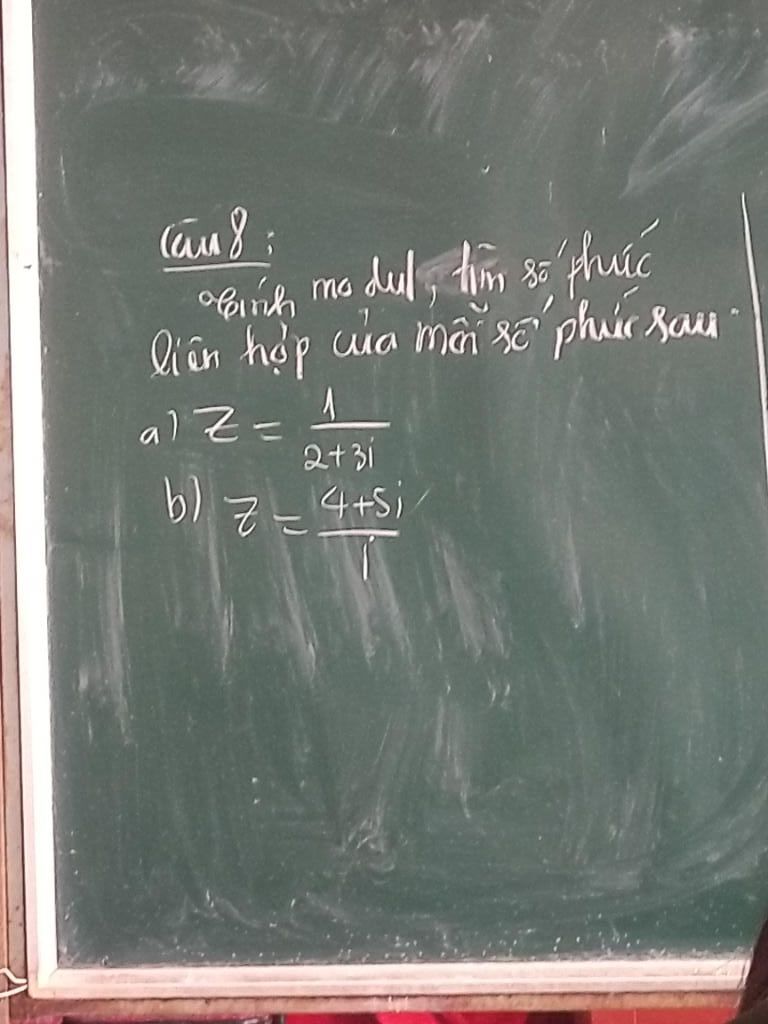 Câu 8:
Tính modul, tìm số phức
liên hợp của mỗi số phức sau.
a) Z = 1 / (2+3i)
b) Z = (4+5i) / i